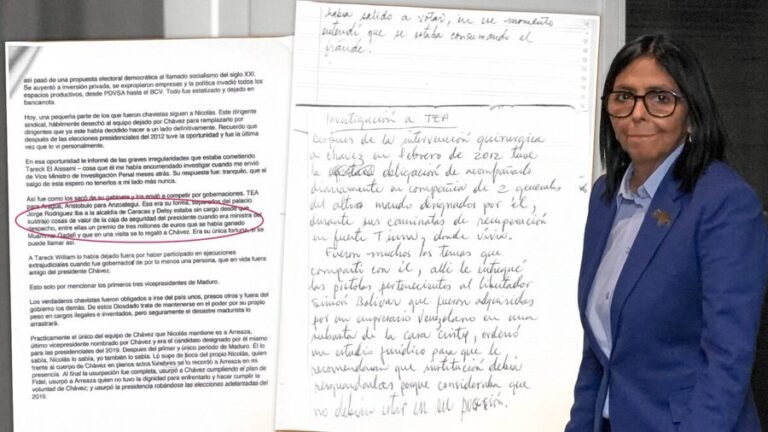 así pasó de una propuesta electoral democrática al llamado socialismo del siglo XXI.
Se auyentó a inversión privada, se expropiaron empresas y la política invadió todos los
espacios productivos, desde PDVSA hasta el BCV. Todo fue estatizado y dejado en
bancarrota.
Hoy, una pequeña parte de los que fueron chavistas siguen a Nicolás. Este dirigente
sindical, hábilmente desechó al equipo dejado por Chávez para remplazarlo por
dirigentes que ya este había decidido hacer a un lado definitivamente. Recuerdo que
después de las elecciones presidenciales del 2012 tuve la oportunidad y fue la última
vez que lo vi personalmente.
En esa oportunidad le informé de las graves irregularidades que estaba cometiendo
Tareck El Aissami – cosa que él me había encomendado investigar cuando me envió
de Vice Ministro de Investigación Penal meses atrás. Su respuesta fue: tranquilo, que si
salgo de esta espero no tenerlos a mi lado más nunca.
Así fue como los sacó de su gabinete y los envió a competir por gobernaciones. TEA
para Aragua, Aristóbulo para Anzoátegui. Esa era su forma, separarlos del palacio
Jorge Rodríguez iba a la alcaldía de Caracas y Delsy estaba sin cargo desde que
sustrajo cosas de valor de la caja de seguridad del presidente cuando era ministra del
despacho, entre ellas un premio de tres millones de euros que se había ganado
Muammar Gadafi y que en una visita se lo regaló a Chávez. Era su única fortuna, si se
puede llamar así.
A Tareck William lo había dejado fuera por haber participado en ejecuciones
extrajudiciales cuando fue gobernador de por lo menos una persona, que en vida fuera
amigo del presidente Chávez.
Esto solo por mencionar los primeros tres vicepresidentes de Maduro.
Los verdaderos chavistas fueron obligados a irse del país unos, presos otros y fuera del
gobierno los demás. De estos Diosdado trata de mantenerse en el poder por su propio
peso en cargos ilegales e inventados, pero seguramente el desastre madurista lo
arrastrará.
Practicamente el único del equipo de Chávez que Nicolás mantiene es a Arreaza,
último vicepresidente nombrado por Chávez y era el candidato designado por él mismo
para las presidenciales del 2019. Despues del primer y único periodo de Maduro. Él lo
sabía, Nicolás lo sabía, yo también lo sabía. Lo supe de boca del propio Nicolás, quien
frente al cuerpo de Chávez en plenos actos fúnebres se lo recordó a Arreaza en mi
presencia. Al final la usurpación fue completa, usurpó a Chávez cumpliendo el plan de
Fidel, usurpó a Arreaza quien no tuvo la dignidad para enfrentarlo y hacer cumplir la
voluntad de Chávez; y usurpó la presidencia robándose las elecciones adelantadas del
2019.
había salido a votar, en ese momento
entendí que se estaba consumando el
fraude.
Investigación a TEA
Después de la intervención quirurgica
a Chávez en febrero de 2012 tuve
la obligación de acompañarlo
diariamente en compañía de 2 generales
del alto mando designados por él,
durante sus caminatas de recuperación
en fuerte Tiuna, donde vivía.
Fueron muchos los temas que
compartí con él, allí le entregué
las pistolas pertenecientes al libertador
Simón Bolívar que fueron adquiridas
por un empresario venezolano en una
subasta de la casa Cristy, ordenó
un estudio jurídico para que le
recomendaran que institución debía
resguardarlas porque consideraba que
no debían estar en su posesión.